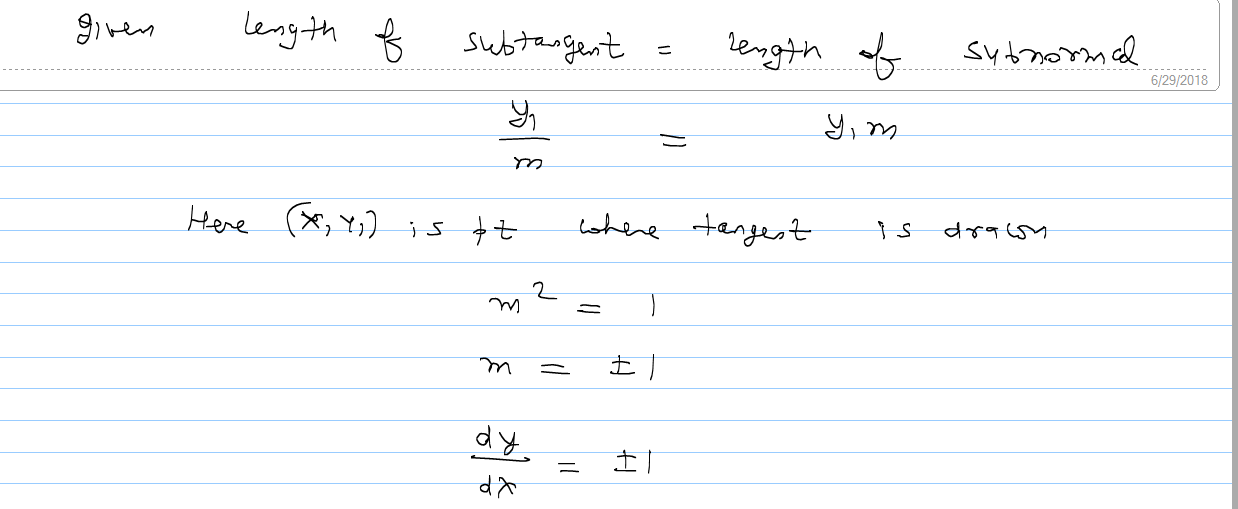 given length of subtangent = length of subnormal
6/29/2018
y₁/m = y₁m
Here (x, y₁) is pt where tangent is drawn
m² = 1
m = ±1
dy/dx = ±1